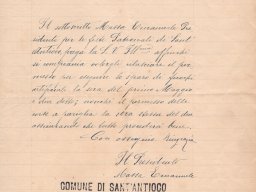 Il sottoscritto Massa Emanuele Pre
sidente per le feste Patronale di Sant'
Antioco, prega la S. V. Ill.ma affinchè
si compiacia volergli rilasciare il per
messo per eseguire lo sparo di fuochi
artificiali la sera del primo Maggio
e due detto; nonché il permesso della
sera stessa del due
assicurando che tutto procederà bene.
Con ossequio Ringrazia
Il Presidente
Massa Emanuele
COMUNE DI SANT'ANTIOCO